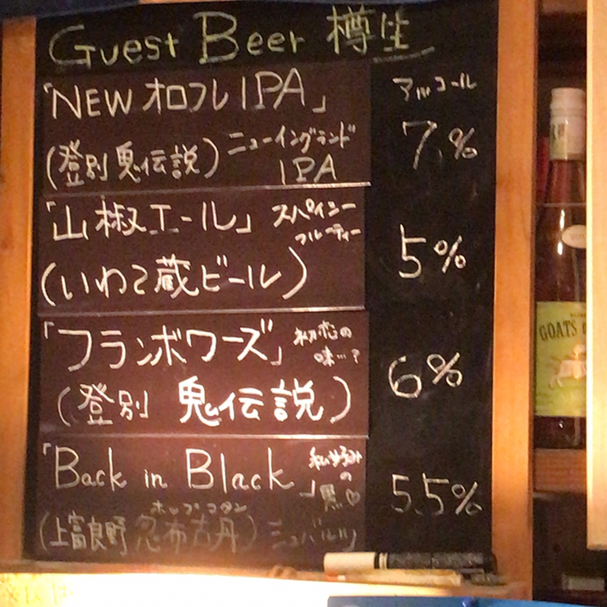 Guest Beer 樽生
アルコール
「NEWオロフレIPA」
(登別鬼伝説) ニューイングランド
IPA
7%
「山椒エール」 スパイシー
フルーティー
(いわて蔵ビール)
5%
「フランボワーズ」 初恋の
味…?
(登別 鬼伝説)
6%
「Back in Black」 私好み
の
黒♡
ホップコタン
(上富良野 忽布古丹) シュバルツ
5.5%
GOATS